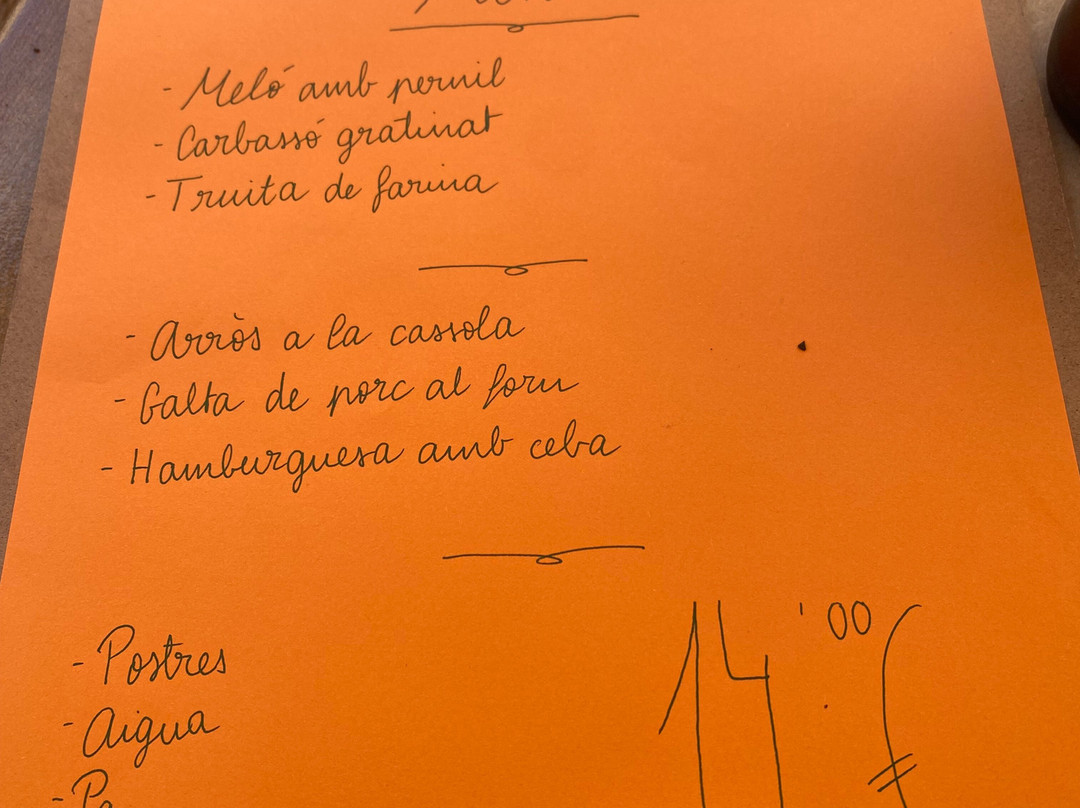 - Meló amb pernil
- Carbassó gratinat
- Truita de farina
- Arròs a la cassola
- Galta de porc al forn
- Hamburguesa amb ceba
- Postres
- Aigua
- Pa
14'00 €